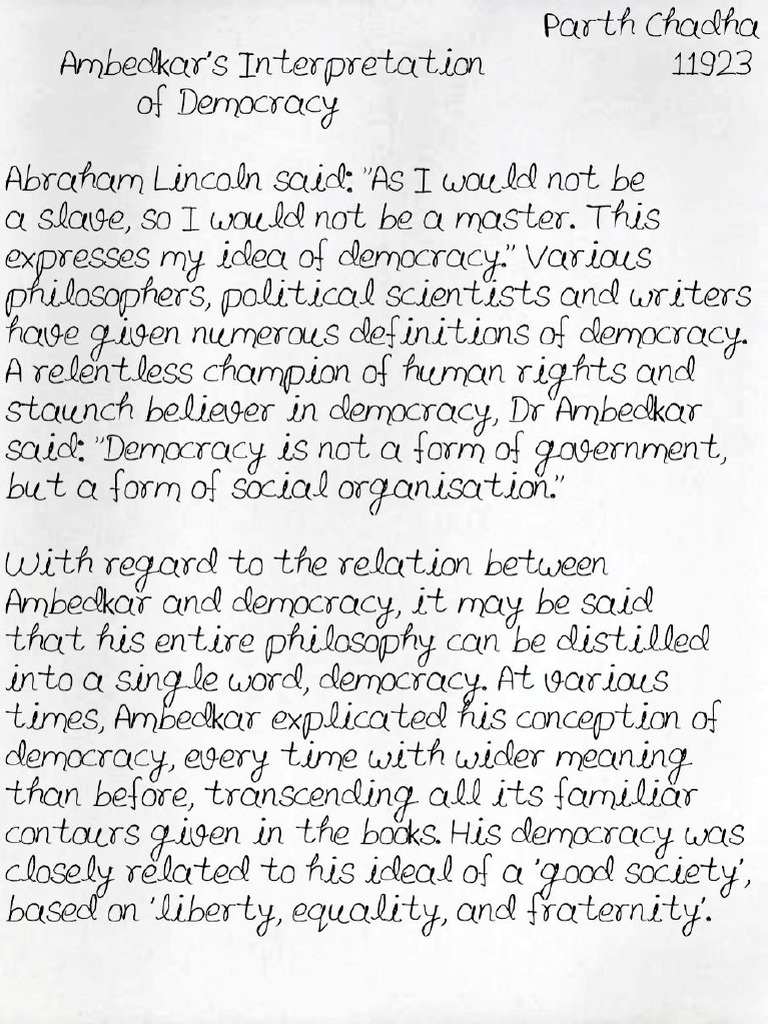 Parth Chadha
11923
Ambedkar's Interpretation
of Democracy
Abraham Lincoln said: "As I would not be
a slave, so I would not be a master. This
expresses my idea of democracy." Various
philosophers, political scientists and writers
have given numerous definitions of democracy.
A relentless champion of human rights and
staunch believer in democracy, Dr Ambedkar
said: "Democracy is not a form of government,
but a form of social organisation."
With regard to the relation between
Ambedkar and democracy, it may be said
that his entire philosophy can be distilled
into a single word, democracy. At various
times, Ambedkar explicated his conception of
democracy, every time with wider meaning
than before, transcending all its familiar
contours given in the books. His democracy was
closely related to his ideal of a 'good society',
based on 'liberty, equality, and fraternity'.